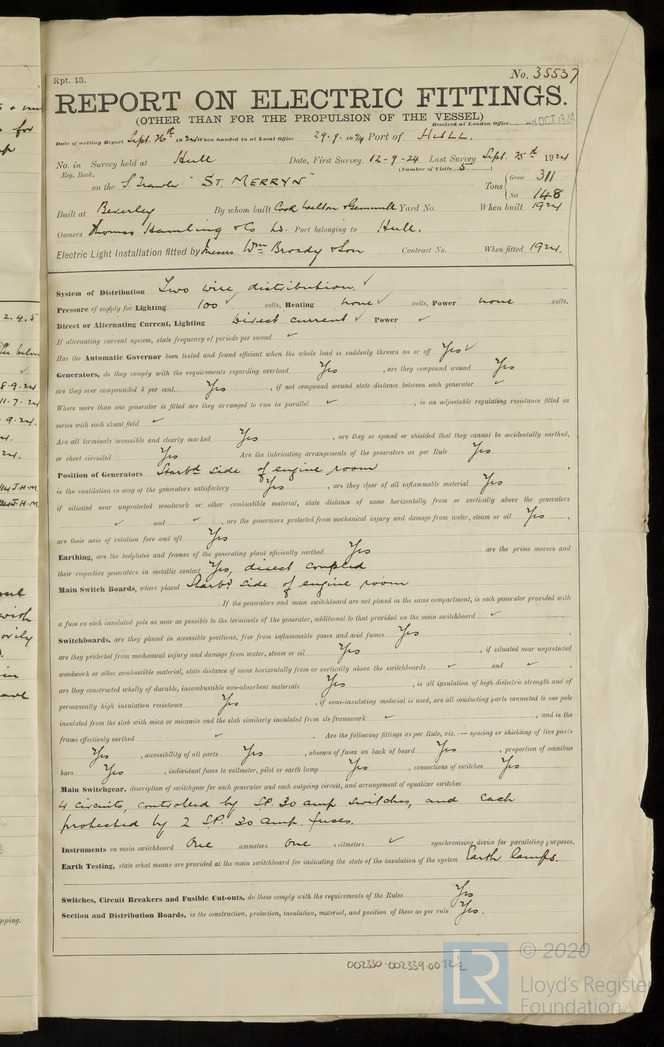 Rpt. 13.
No. 35537
REPORT ON ELECTRIC FITTINGS.
(OTHER THAN FOR THE PROPULSION OF THE VESSEL)
Received at London Office
Date of writing Report Sept. 26th 1924 When handed in at Local Office 29.9.1924 Port of HULL.
No. in Survey held at Hull Date, First Survey 12-9-24 Last Survey Sept. 25th 1924
Reg. Book. (Number of Visits 5)
on the S. Trawler "ST MERRYN" Tons { Gross 311
Net 148
Built at Beverley By whom built Cook Welton & Gemmell Yard No. When built 1924
Owners Thomas Hamling & Co Ld. Port belonging to Hull.
Electric Light Installation fitted by Messrs. Wm Broady & Son Contract No. When fitted 1924.
System of Distribution Two wire distribution. ✓
Pressure of supply for Lighting 100 ✓ volts, Heating none ✓ volts, Power none volts.
Direct or Alternating Current, Lighting Direct current ✓ Power ✓
If alternating current system, state frequency of periods per second ✓
Has the Automatic Governor been tested and found efficient when the whole load is suddenly thrown on or off Yes ✓
Generators, do they comply with the requirements regarding overload Yes , are they compound wound Yes
are they over compounded 5 per cent. Yes , if not compound wound state distance between each generator ✓
Where more than one generator is fitted are they arranged to run in parallel ✓ , is an adjustable regulating resistance fitted in
series with each shunt field ✓
Are all terminals accessible and clearly marked Yes , are they so spaced or shielded that they cannot be accidentally earthed,
or short circuited Yes Are the lubricating arrangements of the generators as per Rule Yes
Position of Generators Starbd side of engine room ,
is the ventilation in way of the generators satisfactory Yes , are they clear of all inflammable material Yes
if situated near unprotected woodwork or other combustible material, state distance of same horizontally from or vertically above the generators
✓ and ✓ , are the generators protected from mechanical injury and damage from water, steam or oil Yes ,
are their axis of rotation fore and aft Yes
Earthing, are the bedplates and frames of the generating plant efficiently earthed Yes are the prime movers and
their respective generators in metallic contact Yes, direct coupled
Main Switch Boards, where placed Starbd side of engine room
If the generators and main switchboard are not placed in the same compartment, is each generator provided with
a fuse on each insulated pole as near as possible to the terminals of the generator, additional to that provided on the main switchboard ✓
Switchboards, are they placed in accessible positions, free from inflammable gases and acid fumes Yes ,
are they protected from mechanical injury and damage from water, steam or oil Yes , if situated near unprotected
woodwork or other combustible material, state distance of same horizontally from or vertically above the switchboards ✓ and ✓ ,
are they constructed wholly of durable, incombustible non-absorbent materials Yes , is all insulation of high dielectric strength and of
permanently high insulation resistance Yes , if semi-insulating material is used, are all conducting parts connected to one pole
insulated from the slab with mica or micanite and the slab similarly insulated from its framework ✓ , and is the
frame effectively earthed ✓ . Are the following fittings as per Rule, viz. — spacing or shielding of live parts
Yes , accessibility of all parts Yes , absence of fuses on back of board Yes , proportion of omnibus
bars Yes , individual fuses to voltmeter, pilot or earth lamp Yes , connections of switches Yes
Main Switchgear, description of switchgear for each generator and each outgoing circuit, and arrangement of equalizer switches
4 circuits, controlled by S.P. 30 amp switches, and each
protected by 2 S.P. 30 amp. fuses.
Instruments on main switchboard One ammeters One voltmeters ✓ synchronising device for paralleling purposes.
Earth Testing, state what means are provided at the main switchboard for indicating the state of the insulation of the system Earth lamps.
Switches, Circuit Breakers and Fusible Cut-outs, do these comply with the requirements of the Rules Yes
Section and Distribution Boards, is the construction, protection, insulation, material, and position of these as per rule Yes.
002330-002339-0072
LR
© 2020
Lloyd's Register
Foundation